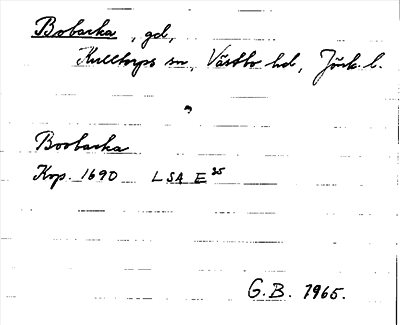 Bobacka, gd,
Kulltorps sn, Västbo hd, Jönk. l.
Boobacka
Kop. 1690 LSA E 25
G.B. 1965.